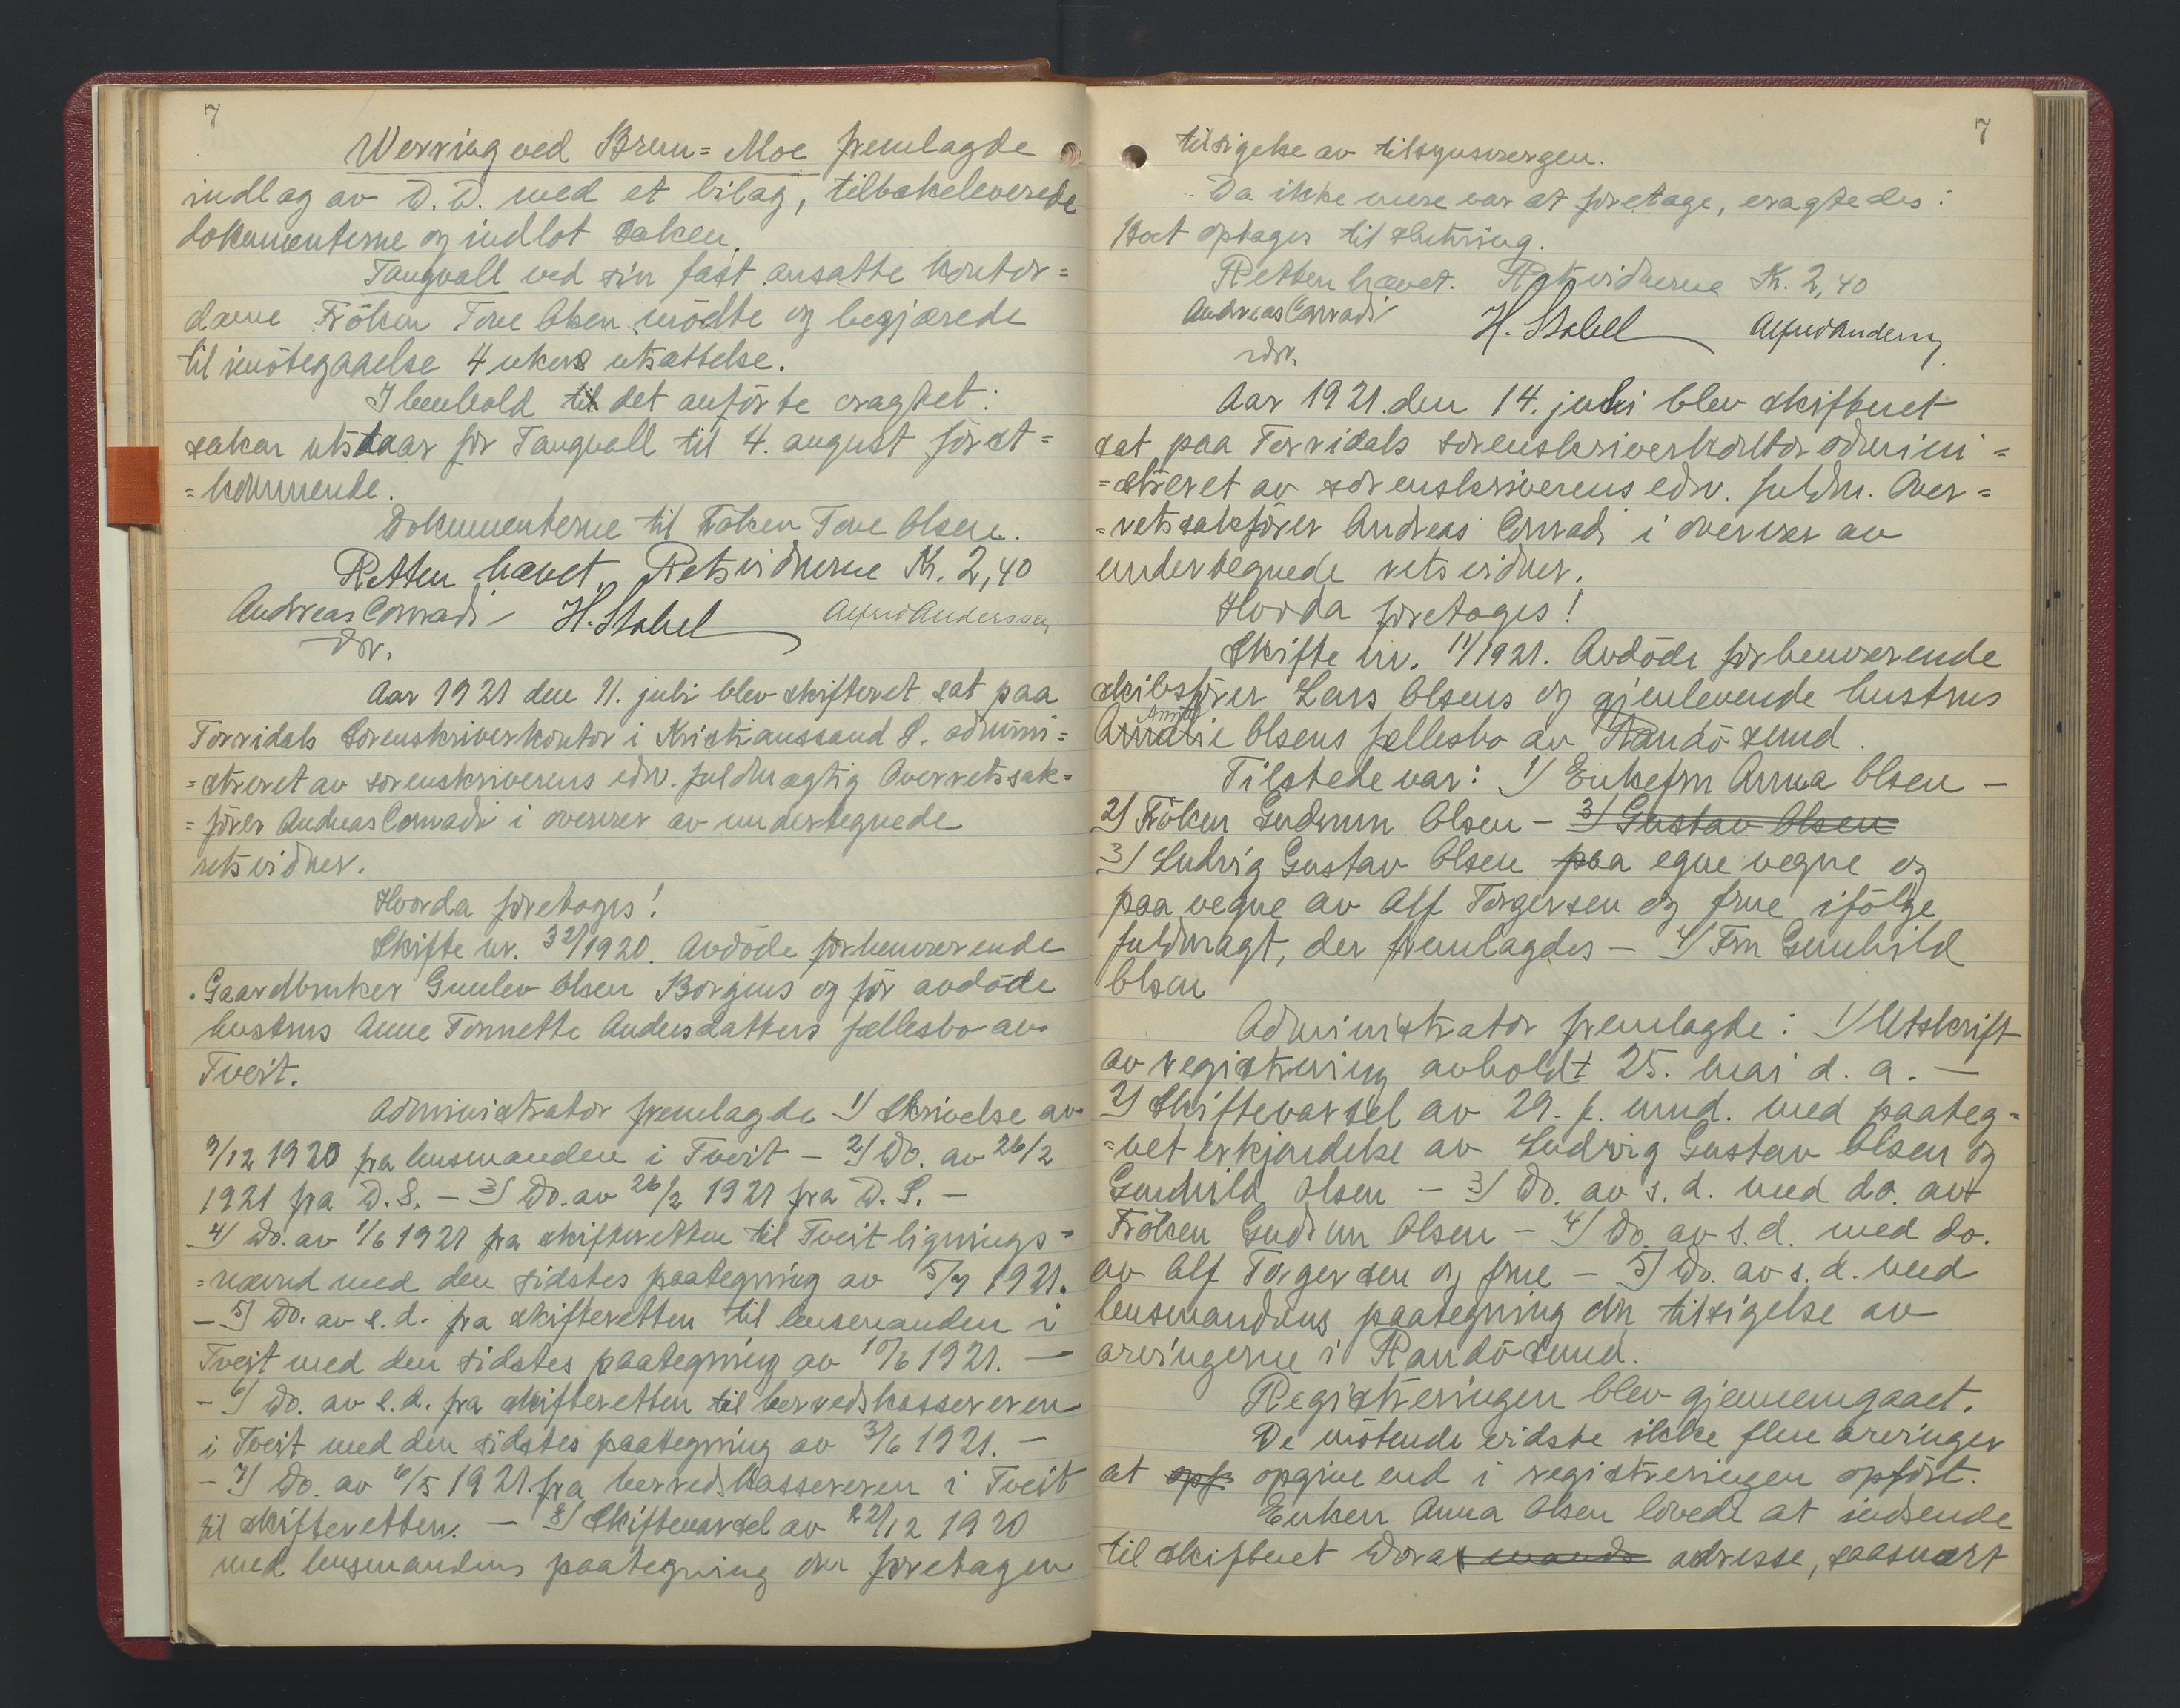 7
Werring ved Brun=Moe fremlagde
indlag av D. D. med et bilag, tilbakeleverede
dokumenterne og indlot saken.
Tangvall ved sin fast ansatte kontor=
dame Fröken Tove Olsen mödte og begjærede
til imötegaaelse 4 ukers utsættelse.
I henhold til det anförte eragtet:
saken utstaar for Tangvall til 4. august först=
=kommende.
Dokumenterne til Fröken Tove Olsen.
Retten hævet. Retsvidnerne Kr. 2,40
Andreas Conradi H. Stabel Alfred Anderssen
edv.
Aar 1921 den 11. juli blev skifteret sat paa
Torridals Sorenskriverkontor i Kristianssand S. admini=
=streret av sorenskriverens edsv. fuldmægtig Overretssak=
=förer Andreas Conradi i overvær av undertegnede
retsvidner.
Hvorda foretoges!
Skifte nr. 32/1920. Avdöde forhenværende
Gaardbruker Gunlev Olsen Borgens og för avdöde
hustrus Anne Tonnette Andersdatters fællesbo av
Tveit.
Administrator fremlagde 1) Skrivelse av
9/12 1920 fra lensmanden i Tveit – 2) Do. av 26/2
1921 fra D. S. – 3) Do. av 26/2 1921 fra D. S. –
4) Do. av 1/6 1921 fra skifteretten til Tveit lignings=
=nævnd med den sidstes paategning av 5/7 1921.
– 5) Do. av s. d. fra skifteretten til lensmanden i
Tveit med den sidstes paategning av 10/6 1921. –
– 6) Do. av s. d. fra skifteretten til herredskassereren
i Tveit med den sidstes paategning av 3/6 1921. –
– 7) Do. av 6/5 1921. fra herredskassereren i Tveit
til skifteretten. – 8) Skiftevarsel av 22/12 1920
med lensmandens paategning om foretagen
7
tilsigelse av tilsynsvergen.
Da ikke mere var at foretage, eragtedes:
Boet optages til slutning.
Retten hævet. Retsvidnerne Kr. 2,40
Andreas Conradi H. Stabel Alfred Anderss
edv.
Aar 1921. den 14. juli blev skifteret
sat paa Torridals sorenskriverkontor admini=
=streret av sorenskriverens edsv. fuldm. Over=
=retssakförer Andreas Conradi i overvær av
undertegnede retsvidner.
Hvorda foretoges!
Skifte nr. 11/1921. Avdöde forhenværende
skibsförer Lars Olsens og gjenlevende hustrus
Anna
Amalie Olsens fællesbo av Randösund.
Tilstede var: 1) Enkefru Anna Olsen –
2) Fröken Gudrun Olsen – 3) Gustav Olsen
3) Ludvig Gustav Olsen paa egne vegne og
paa vegne av Alf Torgersen og frue ifölge
fuldmagt, der fremlagdes – 4) Fru Gunhild
Olsen
Administrator fremlagde: 1) Utskrift
av registrering avholdt 25. mai d. a. –
2) Skiftevarsel av 29. f. mnd. med paateg=
=net erkjendelse av Ludvig Gustav Olsen og
Gunhild Olsen – 3) Do. av s. d. med do. av
Fröken Gudrun Olsen – 4) Do. av s. d. med do.
av Alf Torgersen og frue – 5) Do. av s. d. med
lensmandens paategning om tilsigelse av
arvingerne i Randösund.
Registreringen blev gjennemgaaet.
De mötende vidste ikke flere arvinger
at opf opgive end i registreringen opfört.
Enken Anna Olsen lovede at indsende
til skifteret Doras mands adresse, saasnart